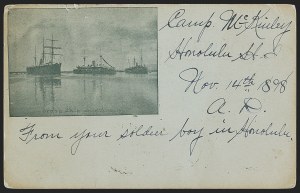 Camp McKinley
Honolulu H. I.
Nov. 14th 1898
A. D.
From your soldier boy in Honolulu.